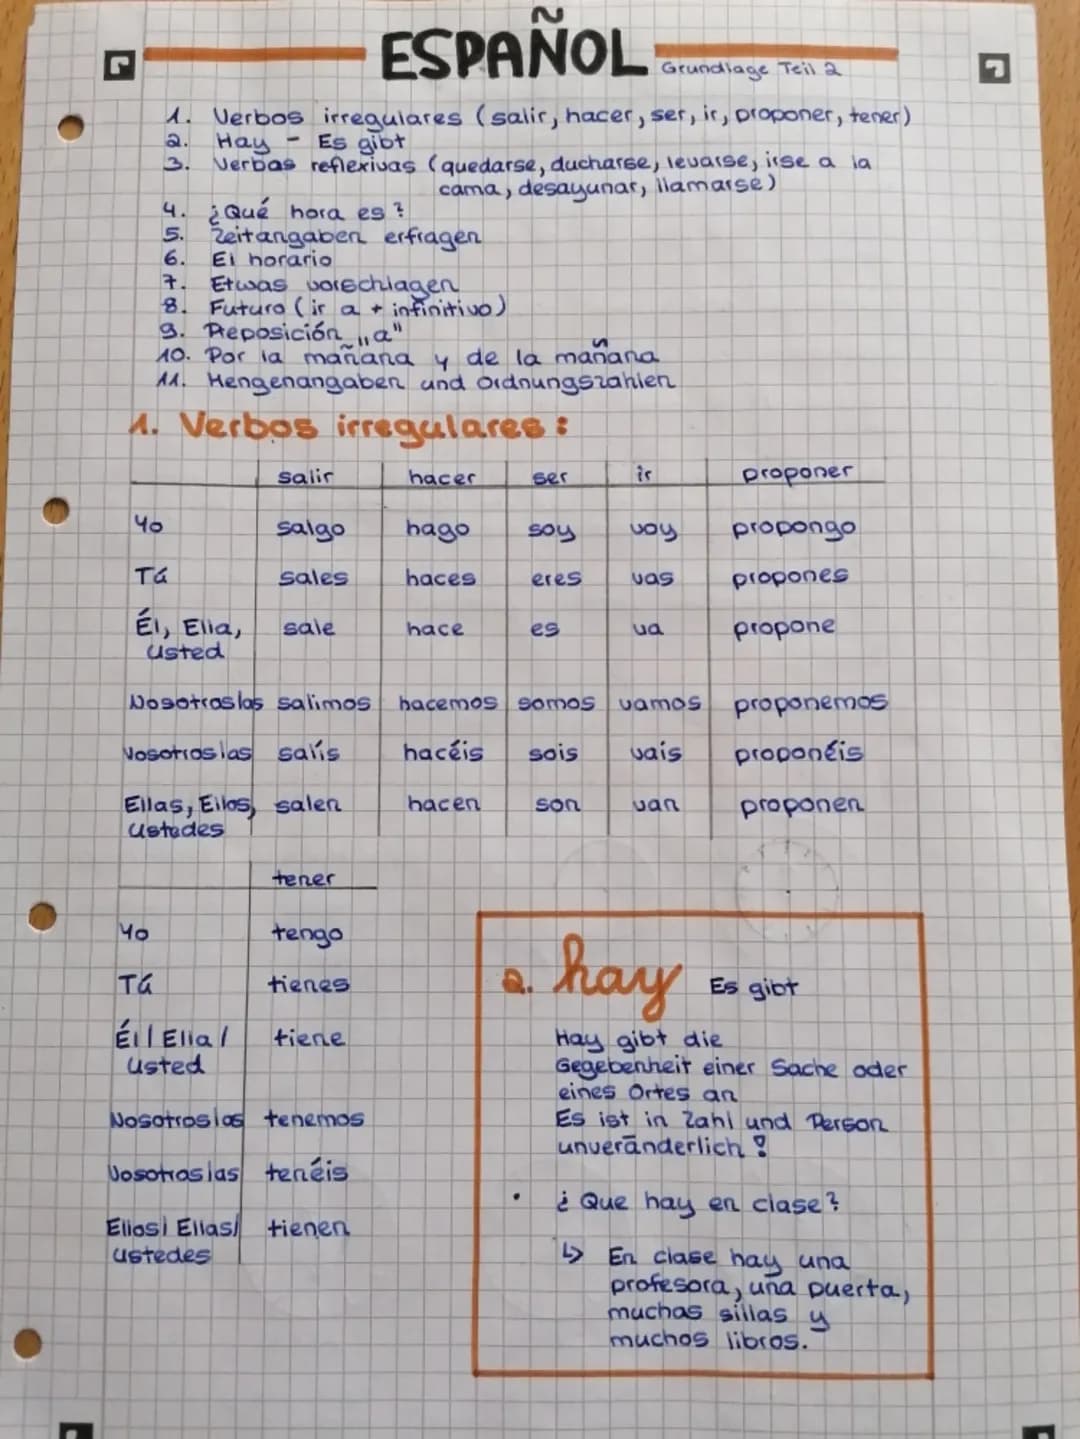 ESPAÑOL
Grundlage Teil 2
1. Verbos irregulares (salir, hacer, ser, ir, proponer, tener)
2. Hay - Es gibt
3. Verbas reflexivas (quedarse, ducharse, levarse, irse a la
cama, desayunar, llamarse)
4. ¿Qué hora es?
5. Zeitangaben erfragen
6. El horario
7. Etwas vorschlagen
8. Futuro (ir a + infinitivo)
9. Preposición „a"
10. Por la mañana y de la mañana
11. Mengenangaben und Ordnungszahlen
1. Verbos irregulares:
salir hacer ser ir proponer
Yo salgo hago soy voy propongo
Tú sales haces eres vas propones
Él, Ella, sale hace es va propone
Usted
Nosotros/as salimos hacemos somos vamos proponemos
Vosotros/as salís hacéis sois vais proponéis
Ellas, Ellos, salen hacen son van proponen
Ustedes
tener
Yo tengo
Tú tienes
Él/Ella/ tiene
Usted
Nosotros/as tenemos
Vosotros/as tenéis
Ellos/Ellas/ tienen
Ustedes
2. hay Es gibt
Hay gibt die
Gegebenheit einer Sache oder
eines Ortes an
Es ist in Zahl und Person
unveränderlich!
• ¿Que hay en clase?
↳ En clase hay una
profesora, uña puerta,
muchas sillas y
muchos libros.